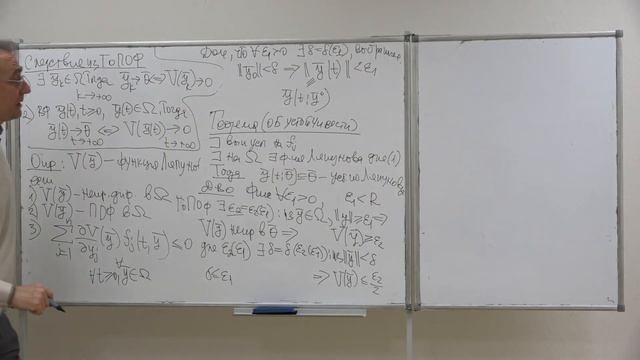 Следствие из ТоПОФ
∃ y̅_k ∈ Ω Тогда y̅_k → 0̅ ⟺ V(y̅_k) → 0
k→+∞
2) y̅(t), t≥0, y̅(t) ∈ Ω, Тогда
y̅(t) → 0̅ ⟺ V(y̅(t)) → 0
t→+∞ t→+∞
Опр: V(y̅) – функция Ляпунова
если
1) V(y̅) – непр. диф. в Ω
2) V(y̅) – ПОФ в Ω
3) ∑_{j=1}^{n} ∂V/∂y_j (y̅) f_j(t, y̅) ≤ 0
∀t≥0, ∀y̅∈Ω
∀ε₁>0 ∃ δ=δ(ε₁),
‖y̅₀‖<δ ⟹ ‖y̅(t)‖<ε₁
y̅(t; y̅⁰)
Теорема (об устойчивости)
∃ на Ω ∃ ф-ия Ляпунова для (1)
Тогда y̅(t; 0̅) ≡ 0̅ – уст. по Ляпунову
Д-во Фикс ∀ε₁>0, ε₁<R
ТоПОФ ∃ ε₂=ε₂(ε₁): ∀y̅∈Ω, ‖y̅‖≥ε₁ ⟹
V(y̅) непр в 0̅ ⟹ V(y̅)≥ε₂
для ε₂(ε₁) ∃ δ=δ(ε₂(ε₁)): ∀ ‖y̅‖<δ
δ≤ε₁ ⟹ V(y̅) ≤ ε₂/2